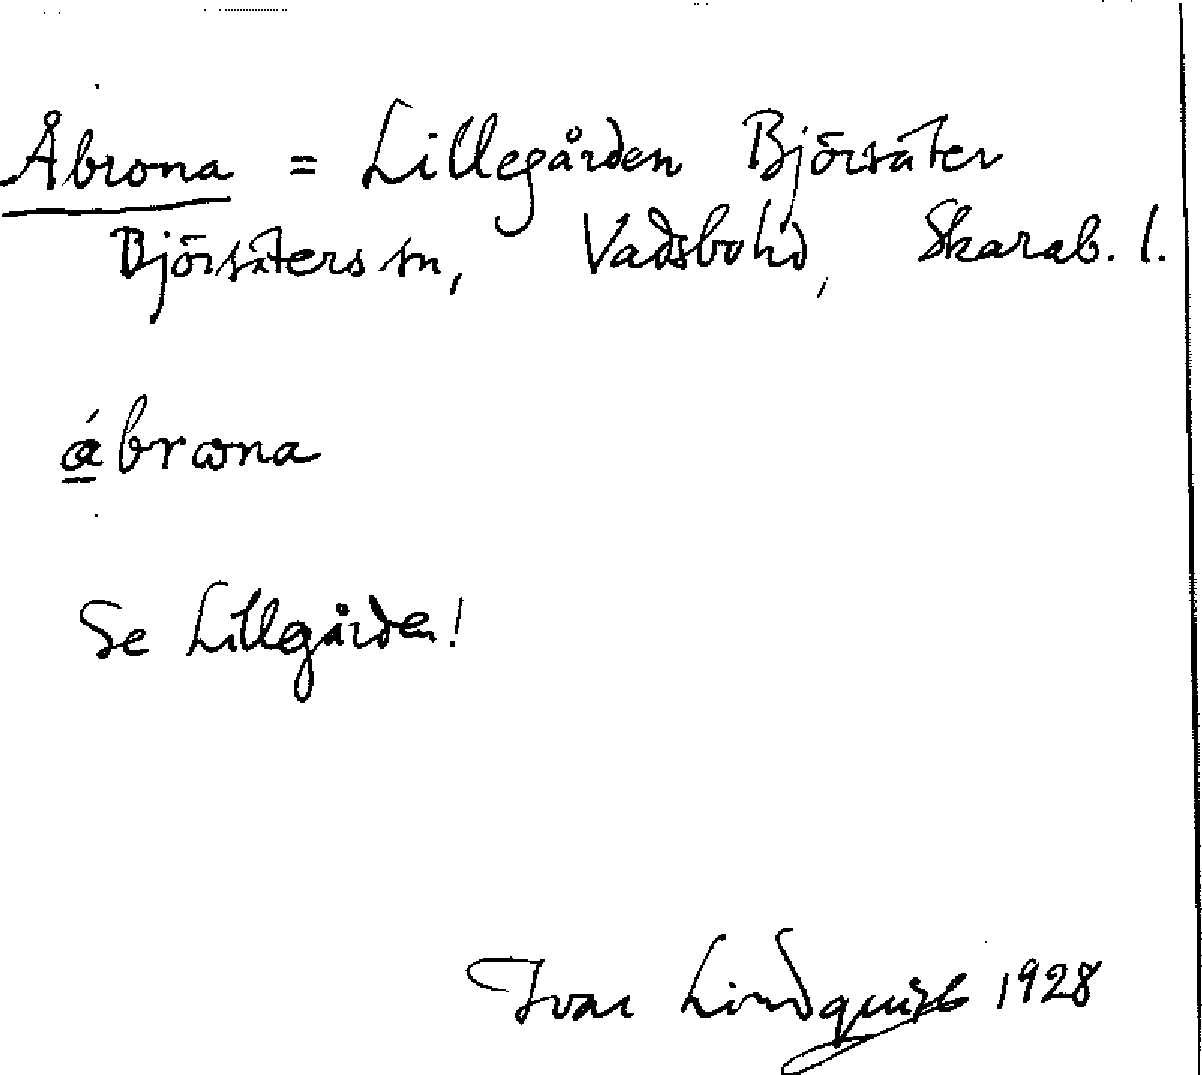 Åbrona = Lillegården Björsäter
Björsäters sn, Vadsbo hd, Skarab. l.
ábrωna
Se Lillgården!
Ivar Lindquist 1928